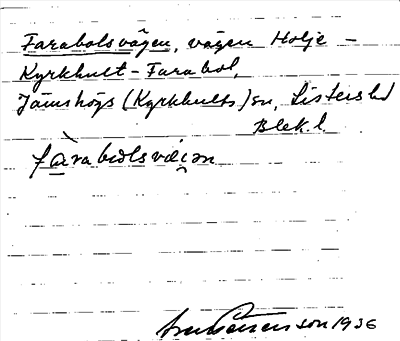 Farabolsvägen, vägen Holje -
Kyrkhult - Farabol,
Jämshögs (Kyrkhults) sn, Listers hd
Blek. l.
fàrabωlsvä̀gən
1936